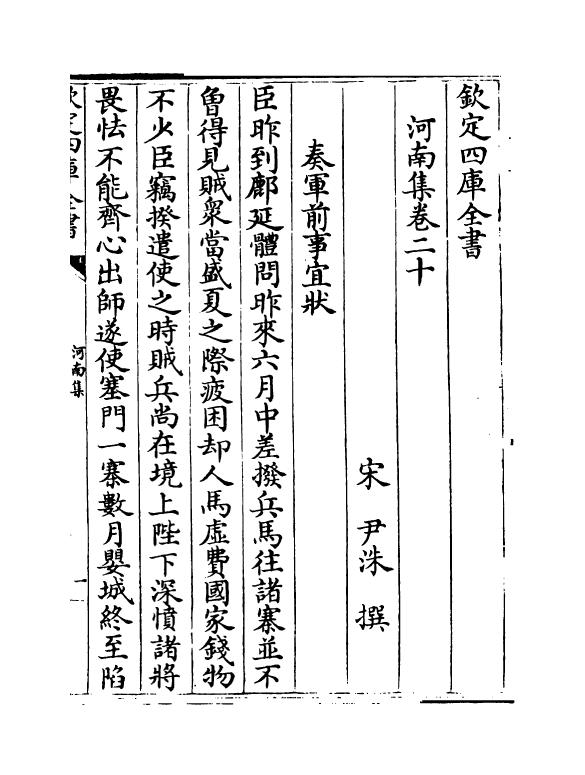 欽定四庫全書
河南集卷二十
宋 尹洙 撰
奏軍前事宜狀
臣昨到鄜延體問昨來六月中差撥兵馬往諸寨並不
曾得見賊衆當盛夏之際疲困却人馬虛費國家錢物
不少臣竊揆遣使之時賊兵尚在境上陛下深憤諸將
畏怯不能齊心出師遂使塞門一寨數月嬰城終至陷
欽定四庫全書
河南集
一